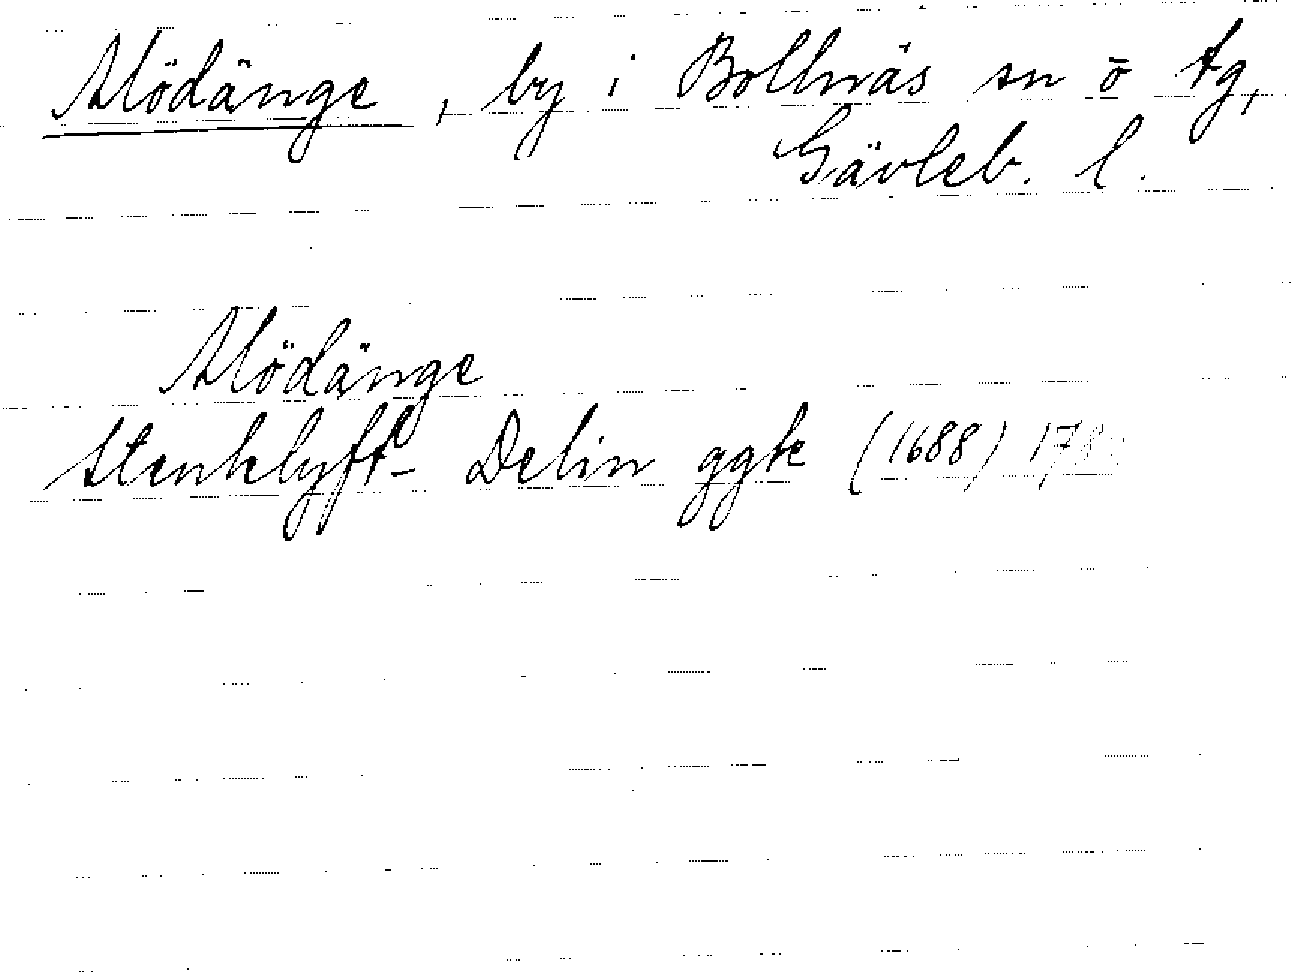 Alödänge, by i Bollnäs sn o tg,
Gävleb. l.
Alödänge
Stenklyft- Delin ggk (1688)